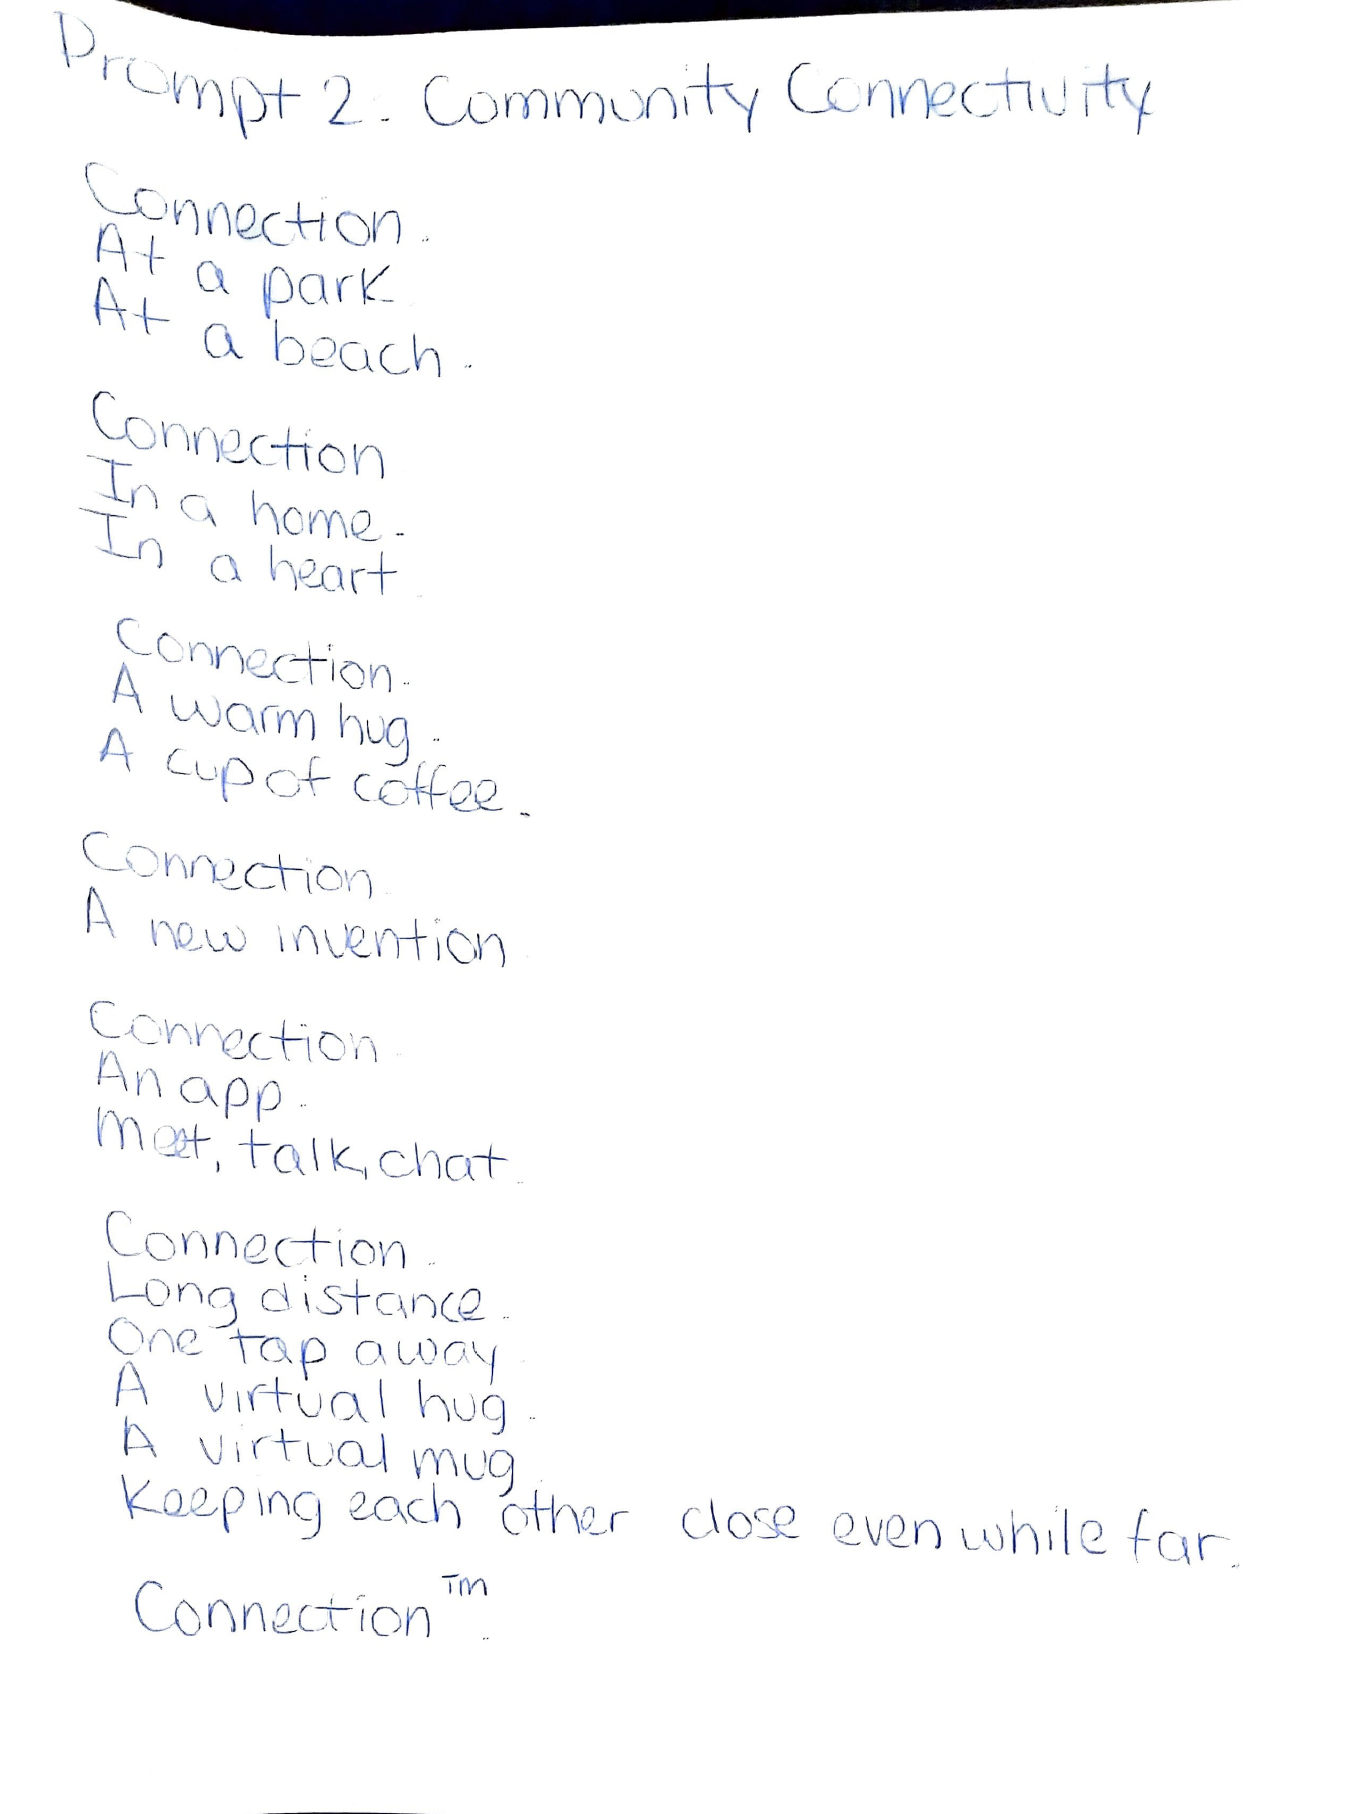 Prompt 2. Community Connectivity
Connection.
At a park
At a beach.
Connection
In a home.
In a heart
Connection.
A warm hug.
A cup of coffee.
Connection
A new invention
Connection
An app.
Meet, talk, chat.
Connection.
Long distance.
One tap away
A virtual hug.
A virtual mug
Keeping each other close even while far.
Connection™.